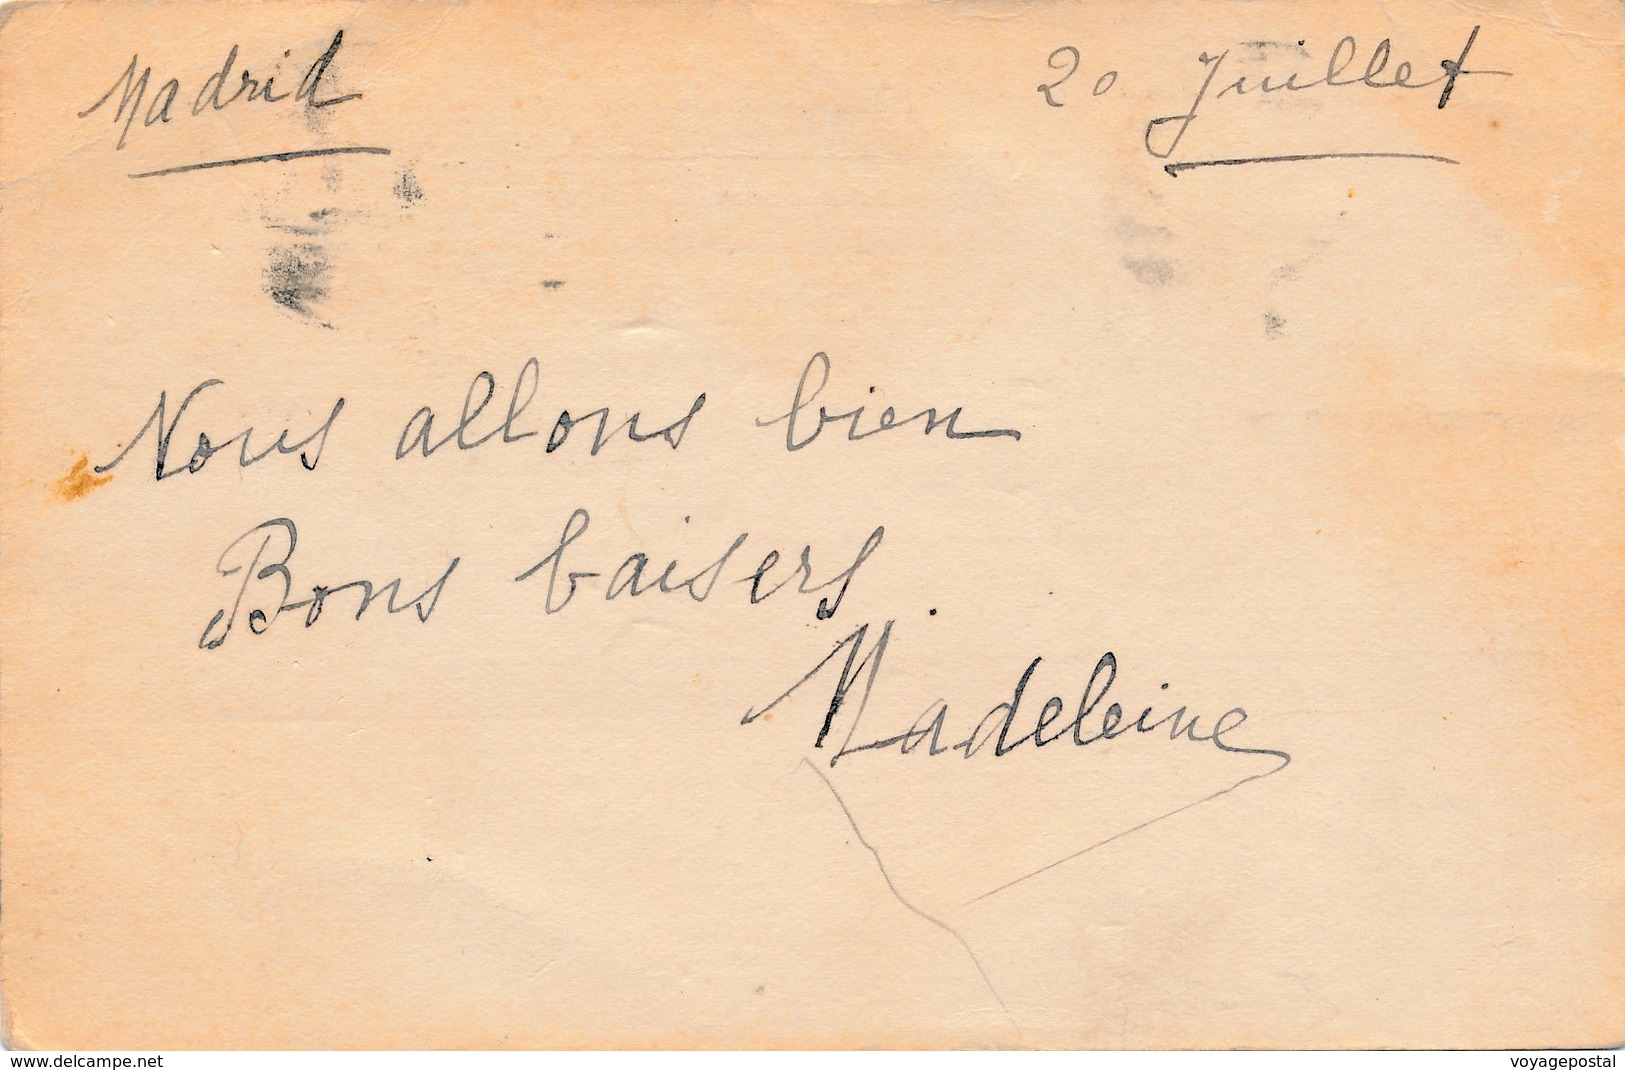 Madrid 20 Juillet
Nous allons bien
Bons baisers
Madeleine
www.delcampe.net voyagepostal